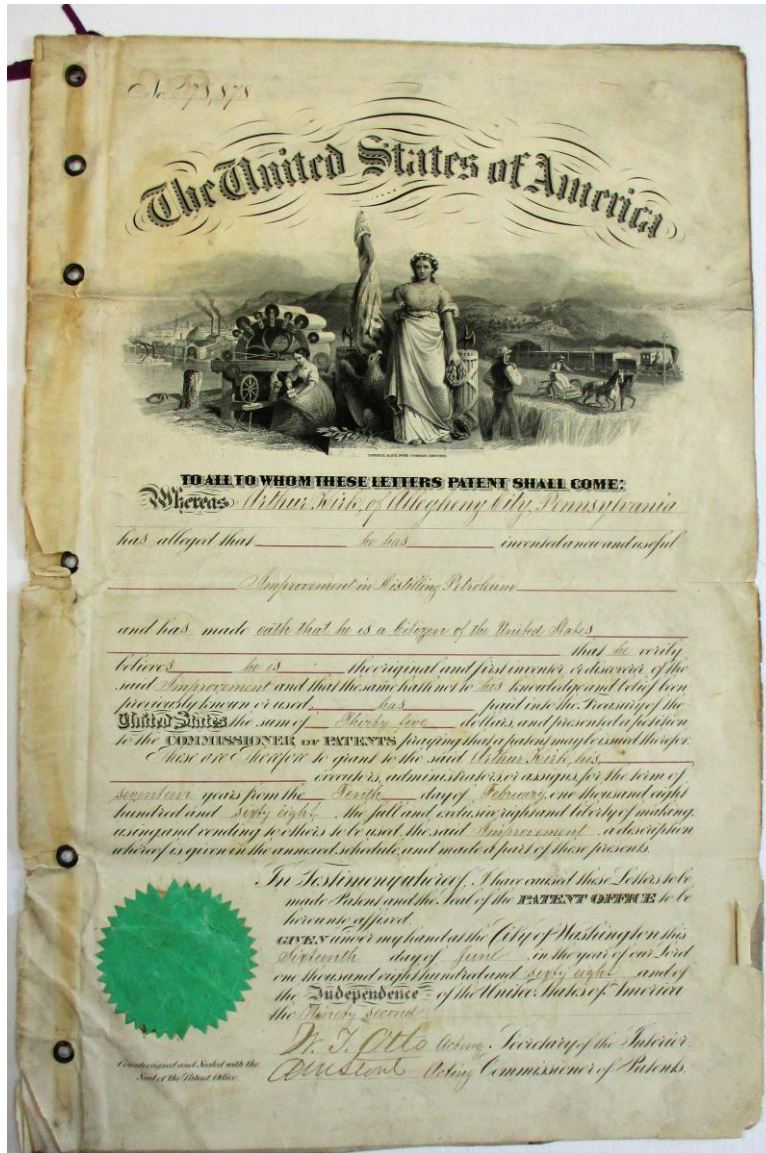 No. 78,878
The United States of America
TO ALL TO WHOM THESE LETTERS PATENT SHALL COME:
Whereas Arthur Kirk, of Allegheny City, Pennsylvania
has alleged that he has invented a new and useful
Improvement in Distilling Petroleum
and has made oath that he is a Citizen of the United States
that he verily
believes he is the original and first inventor or discoverer of the
said Improvement and that the same hath not to his knowledge and belief been
previously known or used, has paid into the Treasury of the
United States the sum of Thirty five dollars, and presented a petition
to the COMMISSIONER OF PATENTS praying that a patent may be issued therefor.
These are Therefore to grant to the said Arthur Kirk, his
executors, administrators or assigns, for the term of
seventeen years from the Tenth day of February, one thousand eight
hundred and sixty eight the full and exclusive right and liberty of making,
using and vending to others to be used, the said Improvement a description
whereof is given in the annexed schedule, and made a part of these presents.
In Testimony whereof, I have caused these Letters to be
made Patent and the Seal of the PATENT OFFICE to be
hereunto affixed.
GIVEN under my hand at the City of Washington this
Sixteenth day of June in the year of our Lord
one thousand eight hundred and sixty eight and of
the Independence of the United States of America
the Ninety second
W. T. Otto Acting Secretary of the Interior.
Countersigned and Sealed with the
Seal of the Patent Office.
Acting Commissioner of Patents.